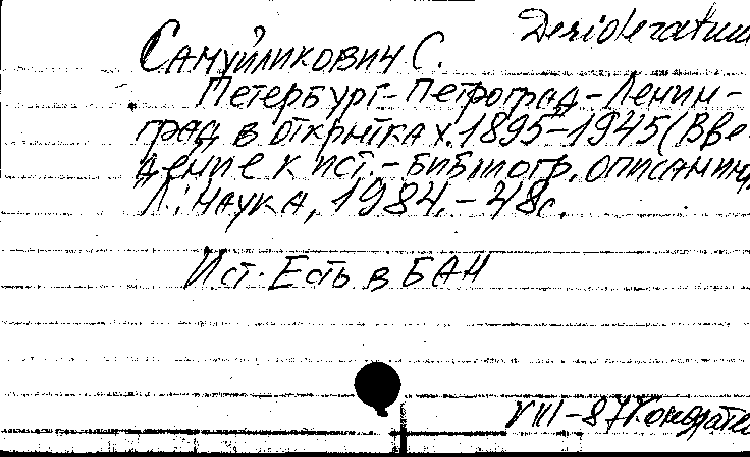 Desideratum
Самуйликович С.
Петербург-Петроград-Ленин-
град в открытках. 1895-1945 (Вве
дение к ист.-библиогр. описанию,
Л.: наука, 1984. - 48с.
Ист. Есть в БАН
VIII-87 Кондратье